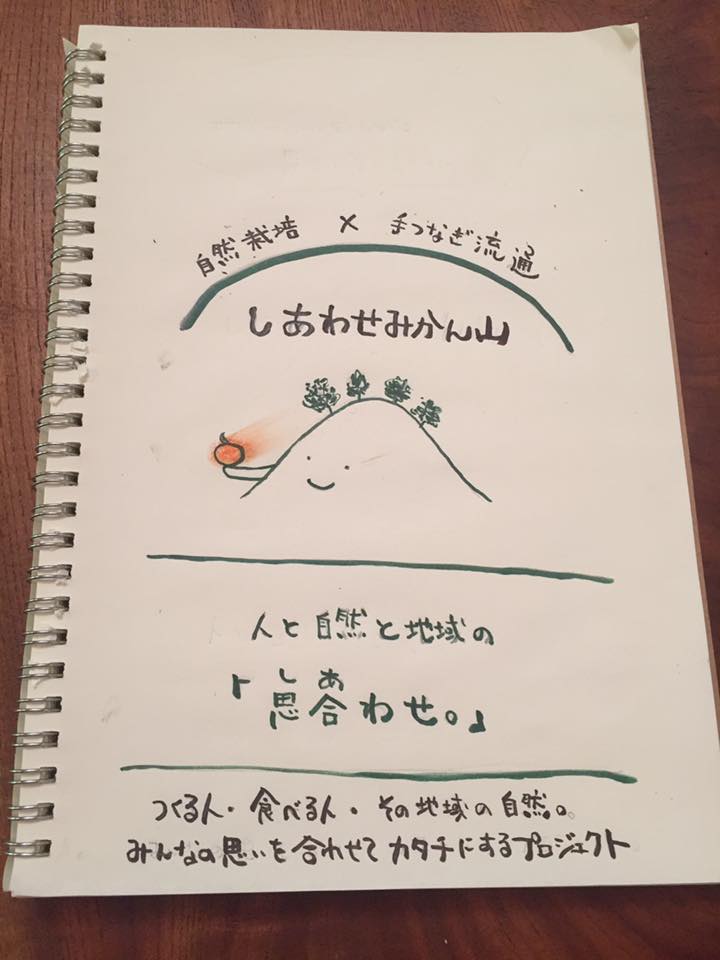 自然栽培 × 手つなぎ流通
しあわせみかん山
人と自然と地域の
しあ
「思合わせ。」
つくる人・食べる人・その地域の自然。
みんなの思いを合わせてカタチにするプロジェクト